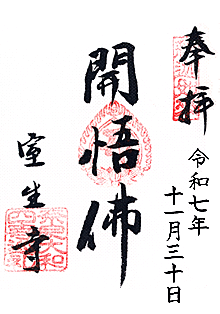 奉拝
令和七年
十一月三十日
開悟佛
室生寺